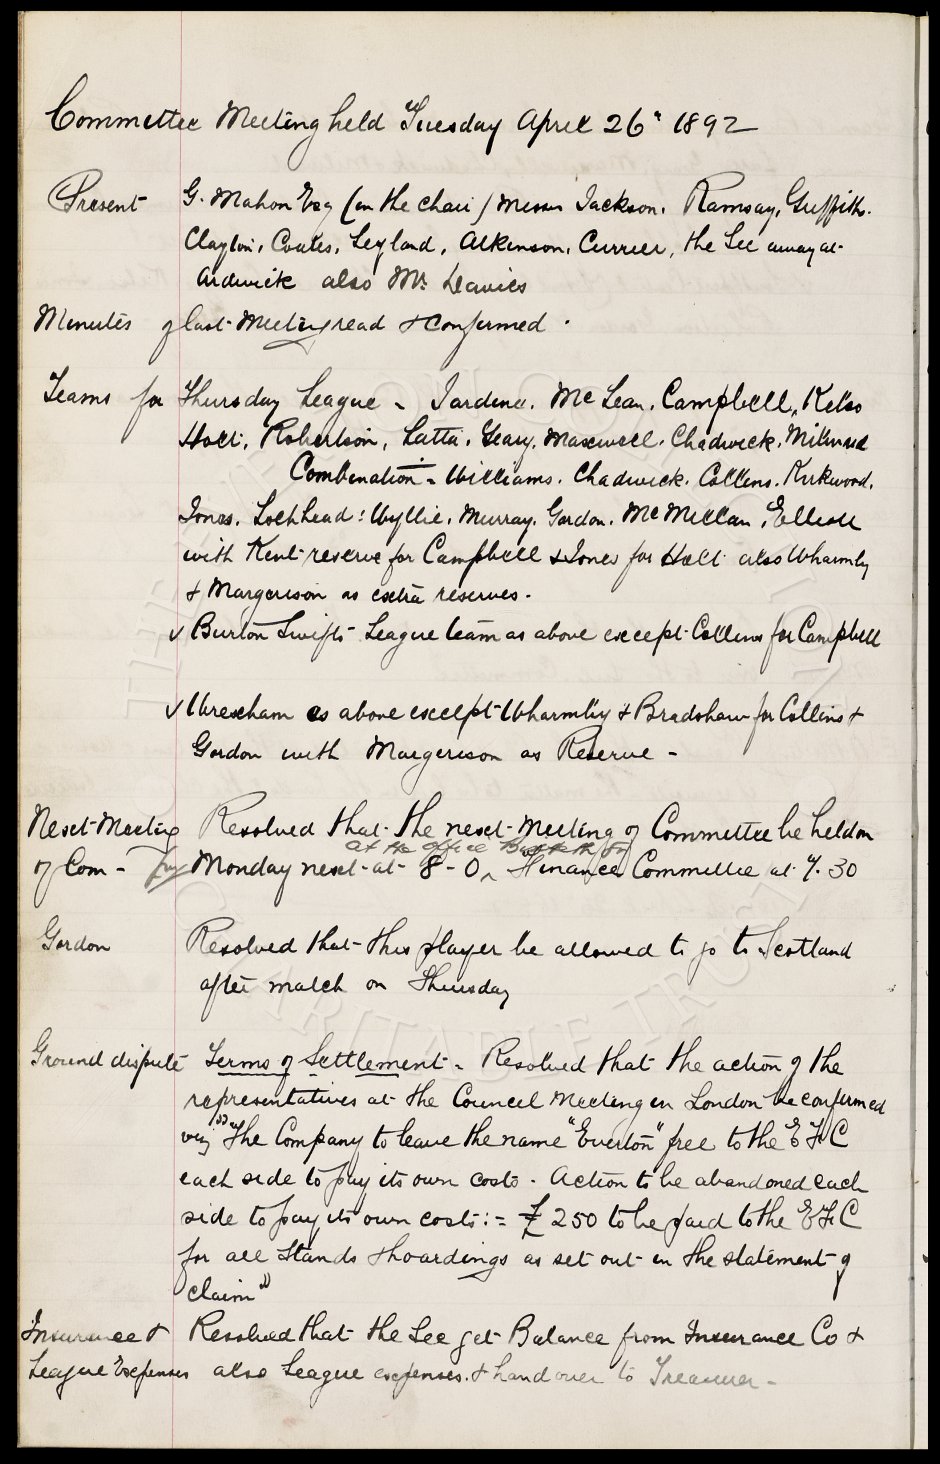 Committee Meeting held Tuesday April 26" 1892
Present G. Mahon Esq (in the chair) Messrs Jackson, Ramsay, Griffiths.
Clayton, Coates, Leyland, Atkinson, Currier, the Sec away at
Ardwick also Mr. Davies
Minutes of last Meeting read & confirmed.
Teams for Thursday League - Jardine. McLean. Campbell, Kelso
Holt, Robertson, Latta, Geary, Maxwell. Chadwick. Milward
Combination - Williams. Chadwick. Collins. Kirkwood.
Jones. Lochhead: Wyllie. Murray. Gordon. McMillan, Elliott
with Kent reserve for Campbell & Jones for Holt also Wharmby
& Margerison as extra reserves.
✓ Burton Swifts League team as above except Collins for Campbell
✓ Wrexham as above except Wharmby & Bradshaw for Collins &
Gordon with Margerison as Reserve -
Next Meeting Resolved that the next meeting of Committee be held on
at the office
of Com - Monday next at 8-0 ^ Finance Committee at 7.30
Gordon Resolved that this player be allowed to go to Scotland
after match on Thursday
Ground dispute Terms of Settlement - Resolved that the action of the
representatives at the Council Meeting in London be confirmed
viz "The Company to leave the name "Everton" free to the E F C
each side to pay its own costs. Action to be abandoned each
side to pay its own costs := £250 to be paid to the E F C
for all Stands & hoardings as set out in the statement of
claim"
Insurance & Resolved that the Sec get Balance from Insurance Co &
League Expenses also League expenses. & hand over to Treasurer -
THE EVERTON COLLECTION
CHARITABLE TRUST